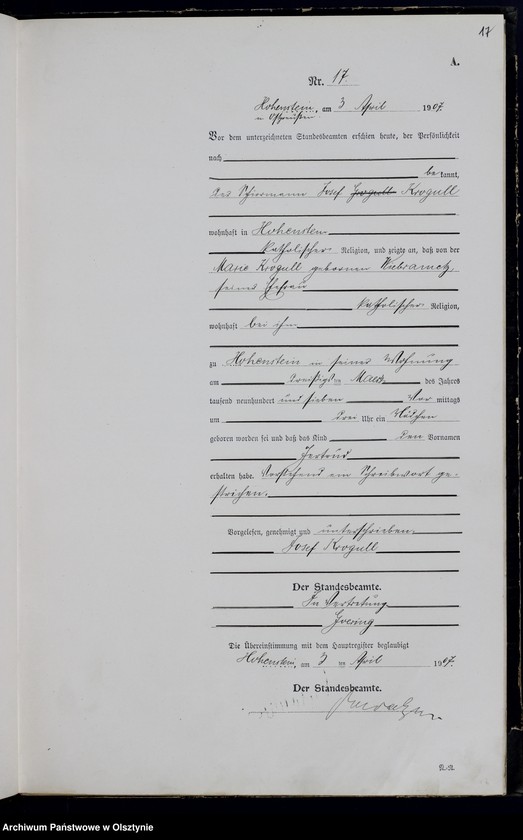 17
A.
Nr. 17
Hohenstein, am 3 April 1907.
in Ostpreußen
Vor dem unterzeichneten Standesbeamten erschien heute, der Persönlichkeit
nach
be kannt,
der Josef Krogull
wohnhaft in Hohenstein
katholischer Religion, und zeigte an, daß von der
Marie Krogull geborenen
seiner Ehefrau
katholischer Religion,
wohnhaft bei ihm
zu Hohenstein in seiner Wohnung
am dreißigsten März des Jahres
tausend neunhundert und sieben Vor mittags
um drei Uhr ein Mädchen
geboren worden sei und daß das Kind den Vornamen
Gertrud
erhalten habe. Vorstehend ein Schreibwort ge-
strichen.
Vorgelesen, genehmigt und unterschrieben.
Josef Krogull
Der Standesbeamte.
In Vertretung
Goering
Die Übereinstimmung mit dem Hauptregister beglaubigt
Hohenstein, am 3 ten April 1907.
Der Standesbeamte.
Archiwum Państwowe w Olsztynie